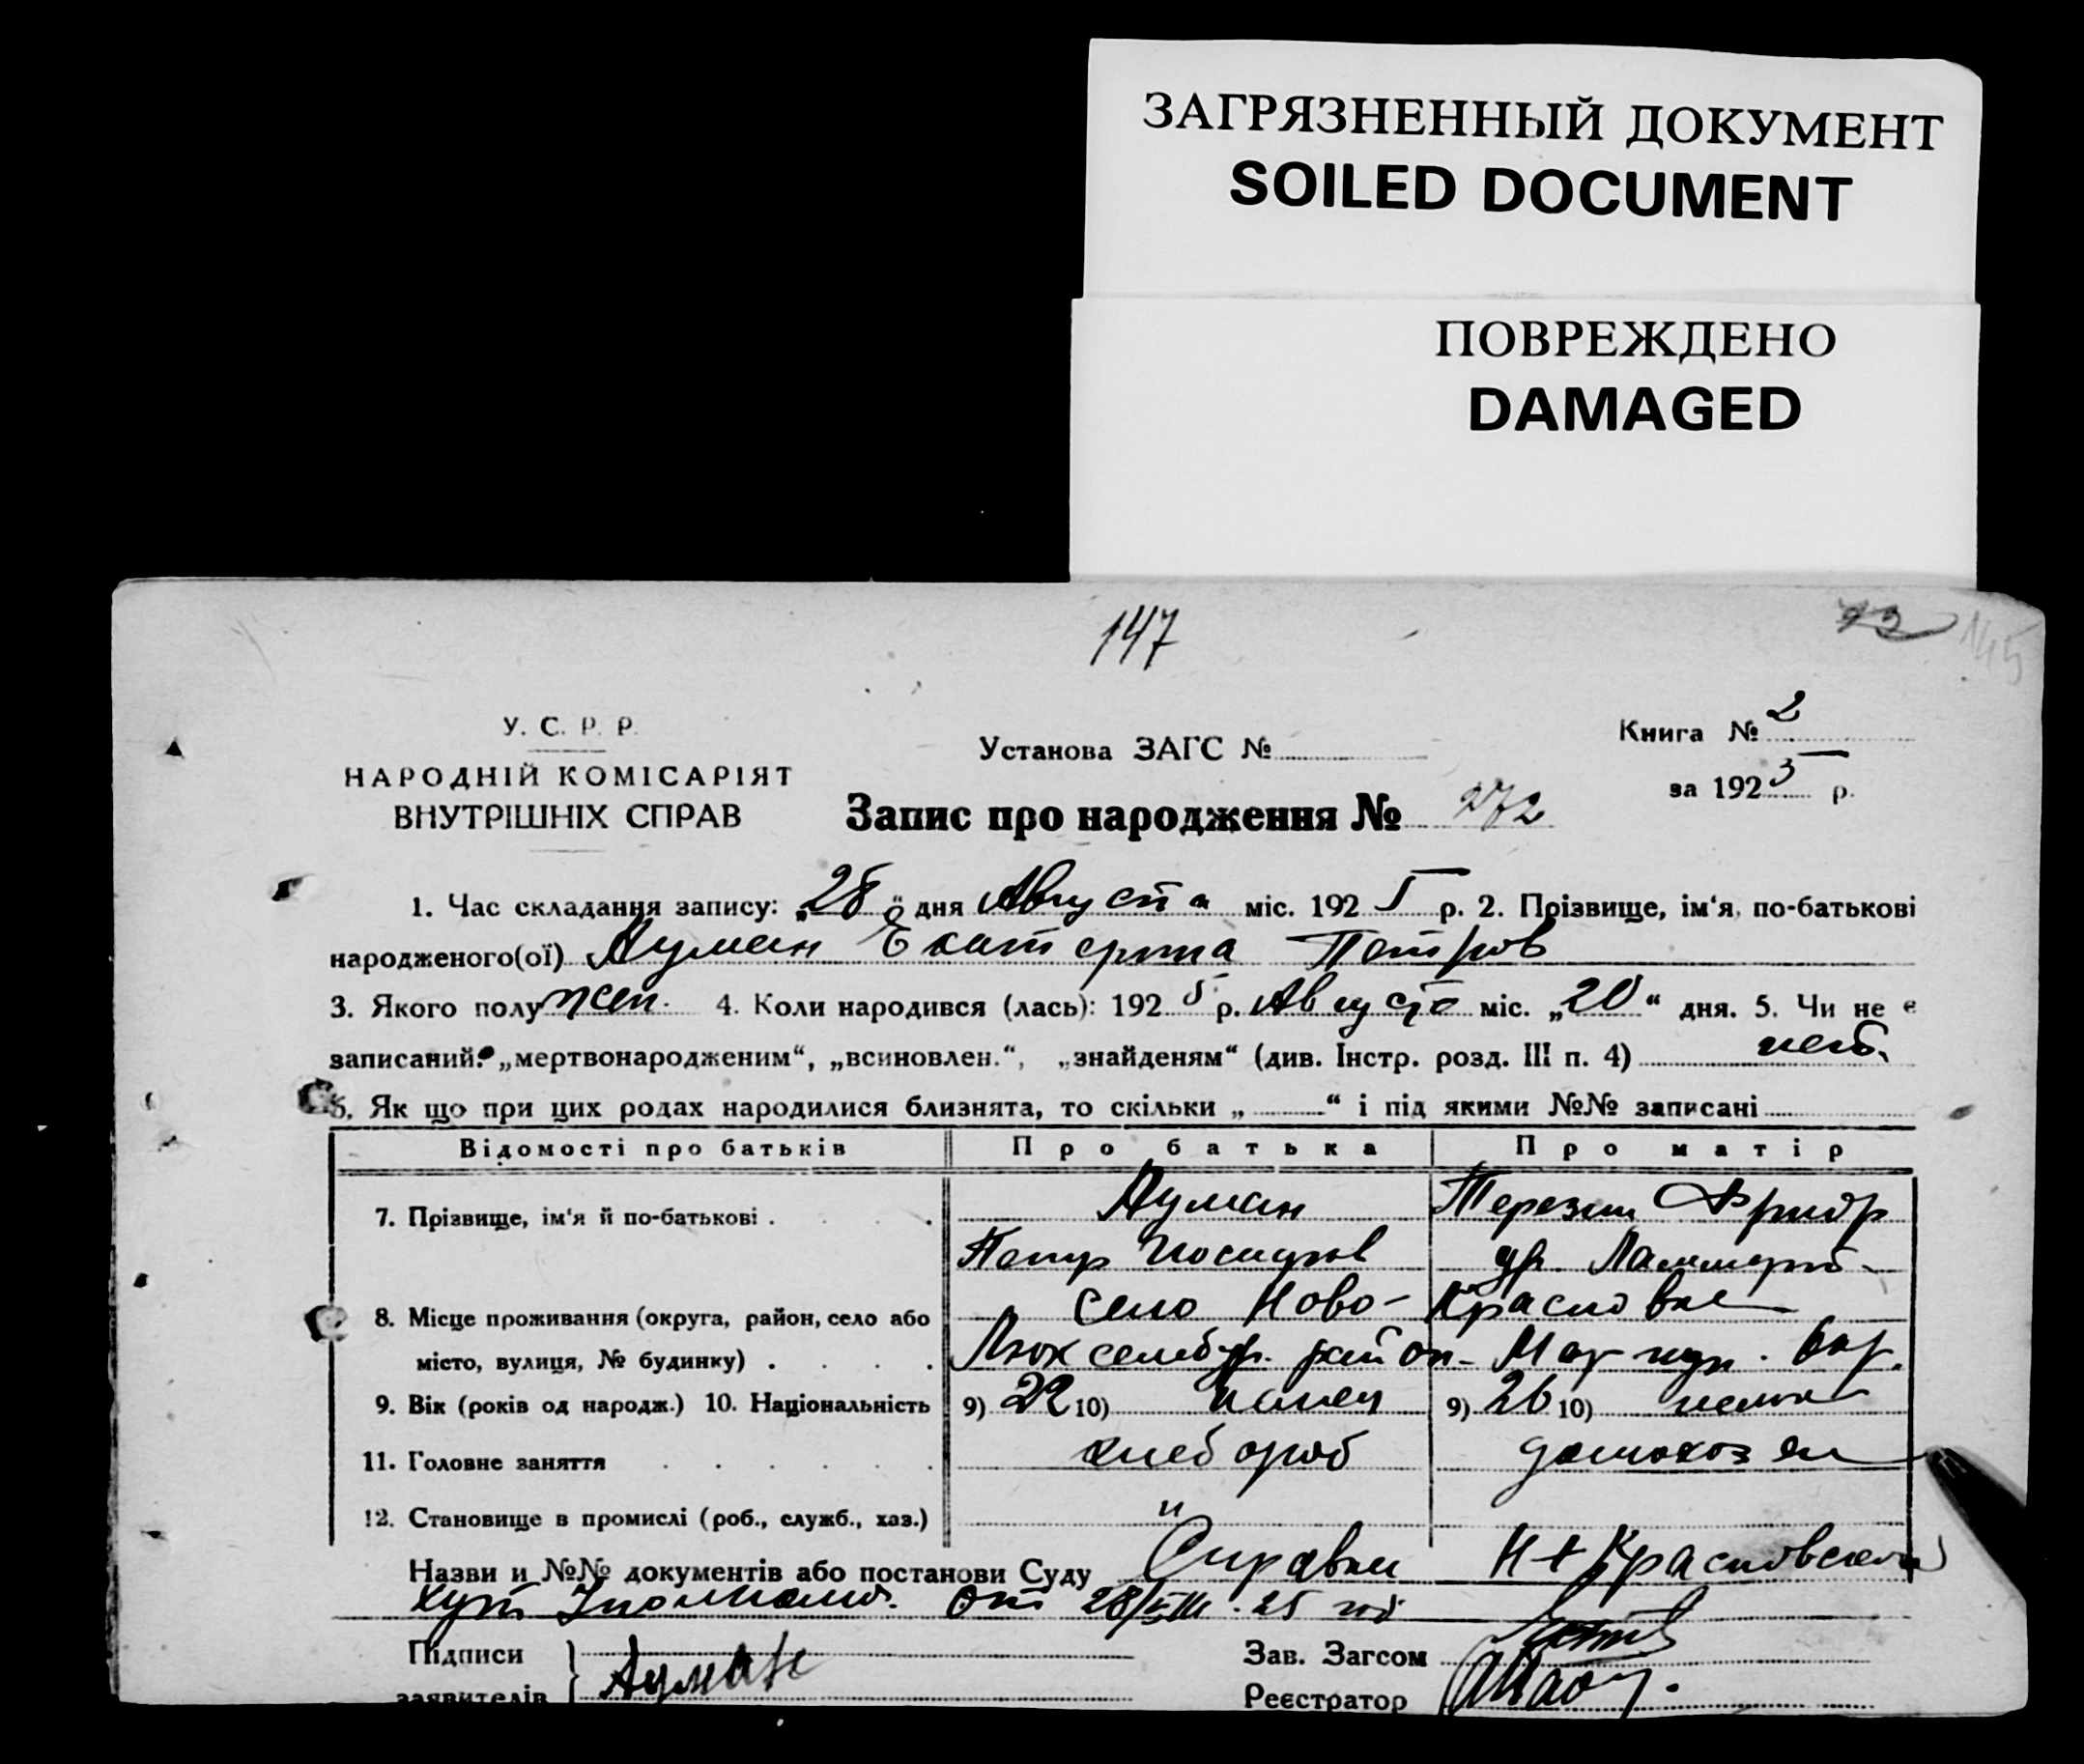 ЗАГРЯЗНЕННЫЙ ДОКУМЕНТ
SOILED DOCUMENT
ПОВРЕЖДЕНО
DAMAGED
147
145
У. С. Р. Р.
НАРОДНІЙ КОМІСАРІЯТ
ВНУТРІШНІХ СПРАВ
Установа ЗАГС №
Книга № 2
за 1925 р.
Запис про народження № 272
1. Час складання запису: „28“ дня Августа міс. 1925 р. 2. Прізвище, ім'я, по-батькові
народженого(ої) Ауман Екатерина Петров
3. Якого полу жен. 4. Коли народився (лась): 1925 р. Августа міс. „20“ дня. 5. Чи не є
записаний: „мертвонародженим“, „всиновлен.“, „знайденям“ (див. Інстр. розд. III п. 4) нет.
6. Як що при цих родах народилися близнята, то скільки „ “ і під якими №№ записані
Відомості про батьків Про батька Про матір
7. Прізвище, ім'я й по-батькові . Ауман Терезия Фридр
Петр Иосифов ур.
8. Місце проживання (округа, район, село або село Ново-Красновке
місто, вулиця, № будинку) . Люксембур. район Мариуп. окр.
9. Вік (років од народж.) 10. Національність 9) 22 10) немец 9) 26 10) немка
11. Головне заняття хлебороб домохоз
12. Становище в промислі (роб., служб., хаз.) "
Назви и №№ документів або постанови Суду Справка Н-Красновского
хут от 28/VIII-25 год
Підписи
заявителів Ауман
Зав. Загсом
Реєстратор